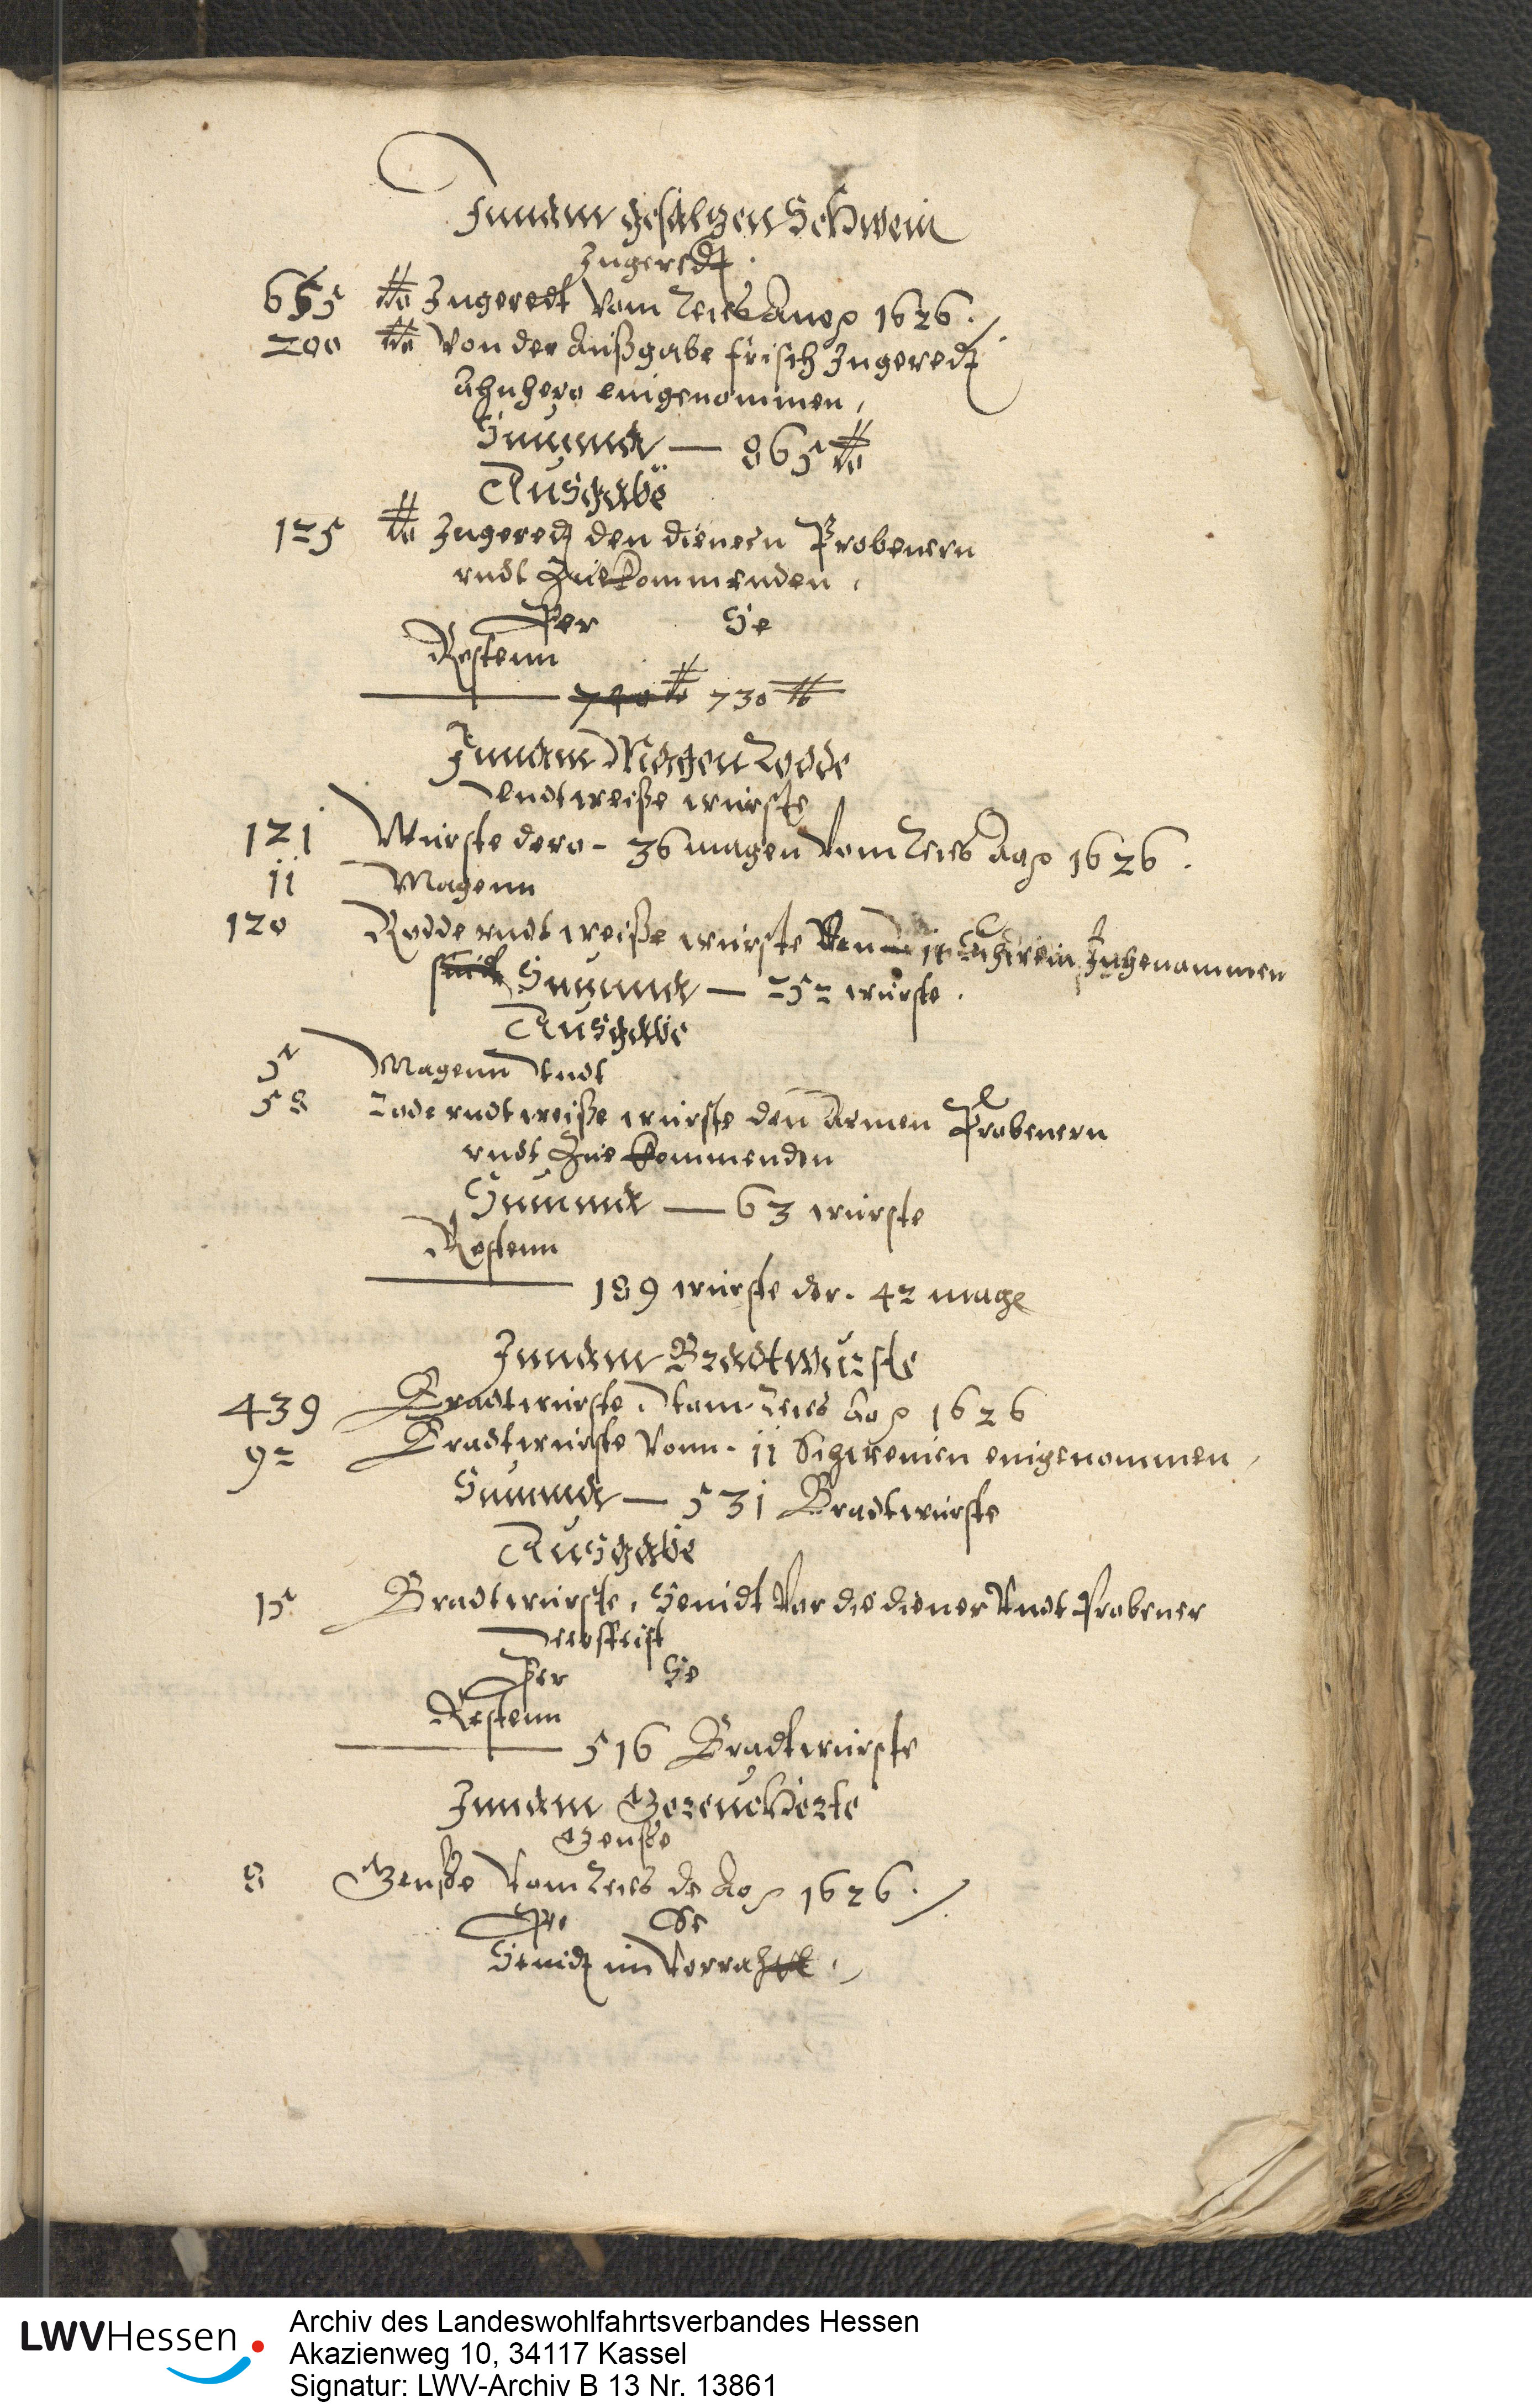 Innam gesaltzen Schwein
Ingeredt
655 lb Ingeredt vom Rest Anno 1626.
200 lb Von der Außgabe frisch Ingeredt
Anhero eingenommen,
Summa — 865 lb
Ausgabe
125 lb Ingered den dienern Probenern
vndt Zue kommenden,
Per Se
Restenn
740 lb 730 lb
Innam Magen Rodde
vndt weiße würste
121 Würste dero - 36 magen vom Rest Ao 1626.
11 Magenn
120 Rodde vndt weiße würste Von 11 Schwein Ingenammen
Summa — 252 würste.
Ausgabe
5 Magenn vndt
58 Rode vndt weiße würste den Armen Probenern
vndt Zue kommenden
Summa — 63 würste
Restenn
189 würste der. 42 mage
Innam Bradtwürste
439 Bradtwürste vom Rest Ao 1626
92 Bradtwürste Vonn. 11 Schweinen eingenommen,
Summa — 531 Bradtwürste
Ausgabe
15 Bradtwürste, Seindt Vor die diener Vndt Probener
Per Se
Restenn
516 Bradtwürste
Innam Gereucherte
Genße
8 Genße vom Rest de Ao 1626.
Per Se
Seindt im Vorraht.
LWVHessen
Archiv des Landeswohlfahrtsverbandes Hessen
Akazienweg 10, 34117 Kassel
Signatur: LWV-Archiv B 13 Nr. 13861